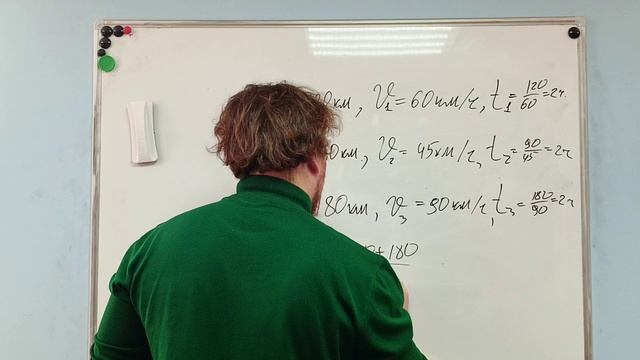 0км, V₁=60км/ч, t₁=120/60=2ч.
0км, V₂=45км/ч, t₂=90/45=2ч
80км, V₃=90км/ч, t₃=180/90=2ч
+180